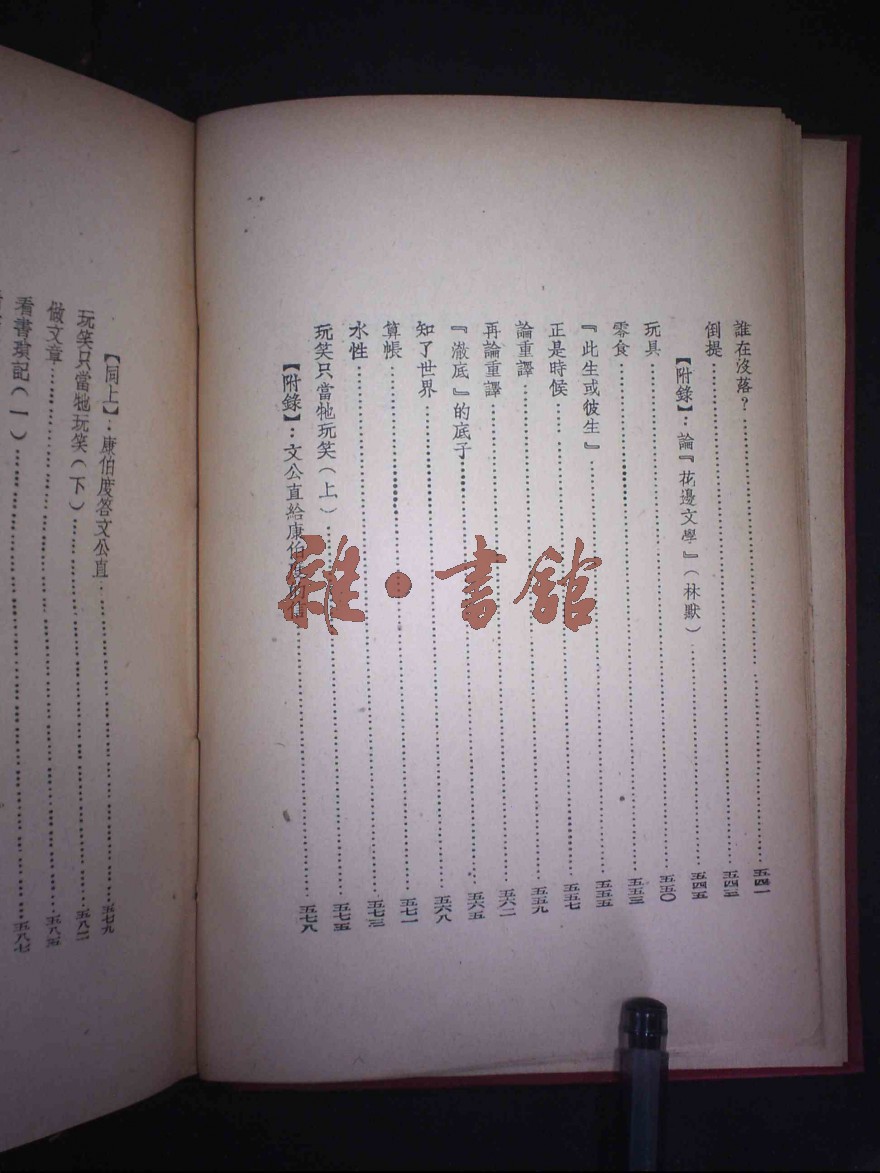 誰在沒落？……五四一
倒提……五四三
【附錄】：論『花邊文學』（林默）……五四五
玩具……五五〇
零食……五五三
『此生或彼生』……五五五
正是時候……五五七
論重譯……五五九
再論重譯……五六二
『澈底』的底子……五六五
知了世界……五六八
算帳……五七一
水性……五七三
玩笑只當牠玩笑（上）……五七五
【附錄】：文公直給康伯……五七八
【同上】：康伯度答文公直……五七九
玩笑只當牠玩笑（下）……五八二
做文章……五八五
看書瑣記（一）……五八七
雜·書館